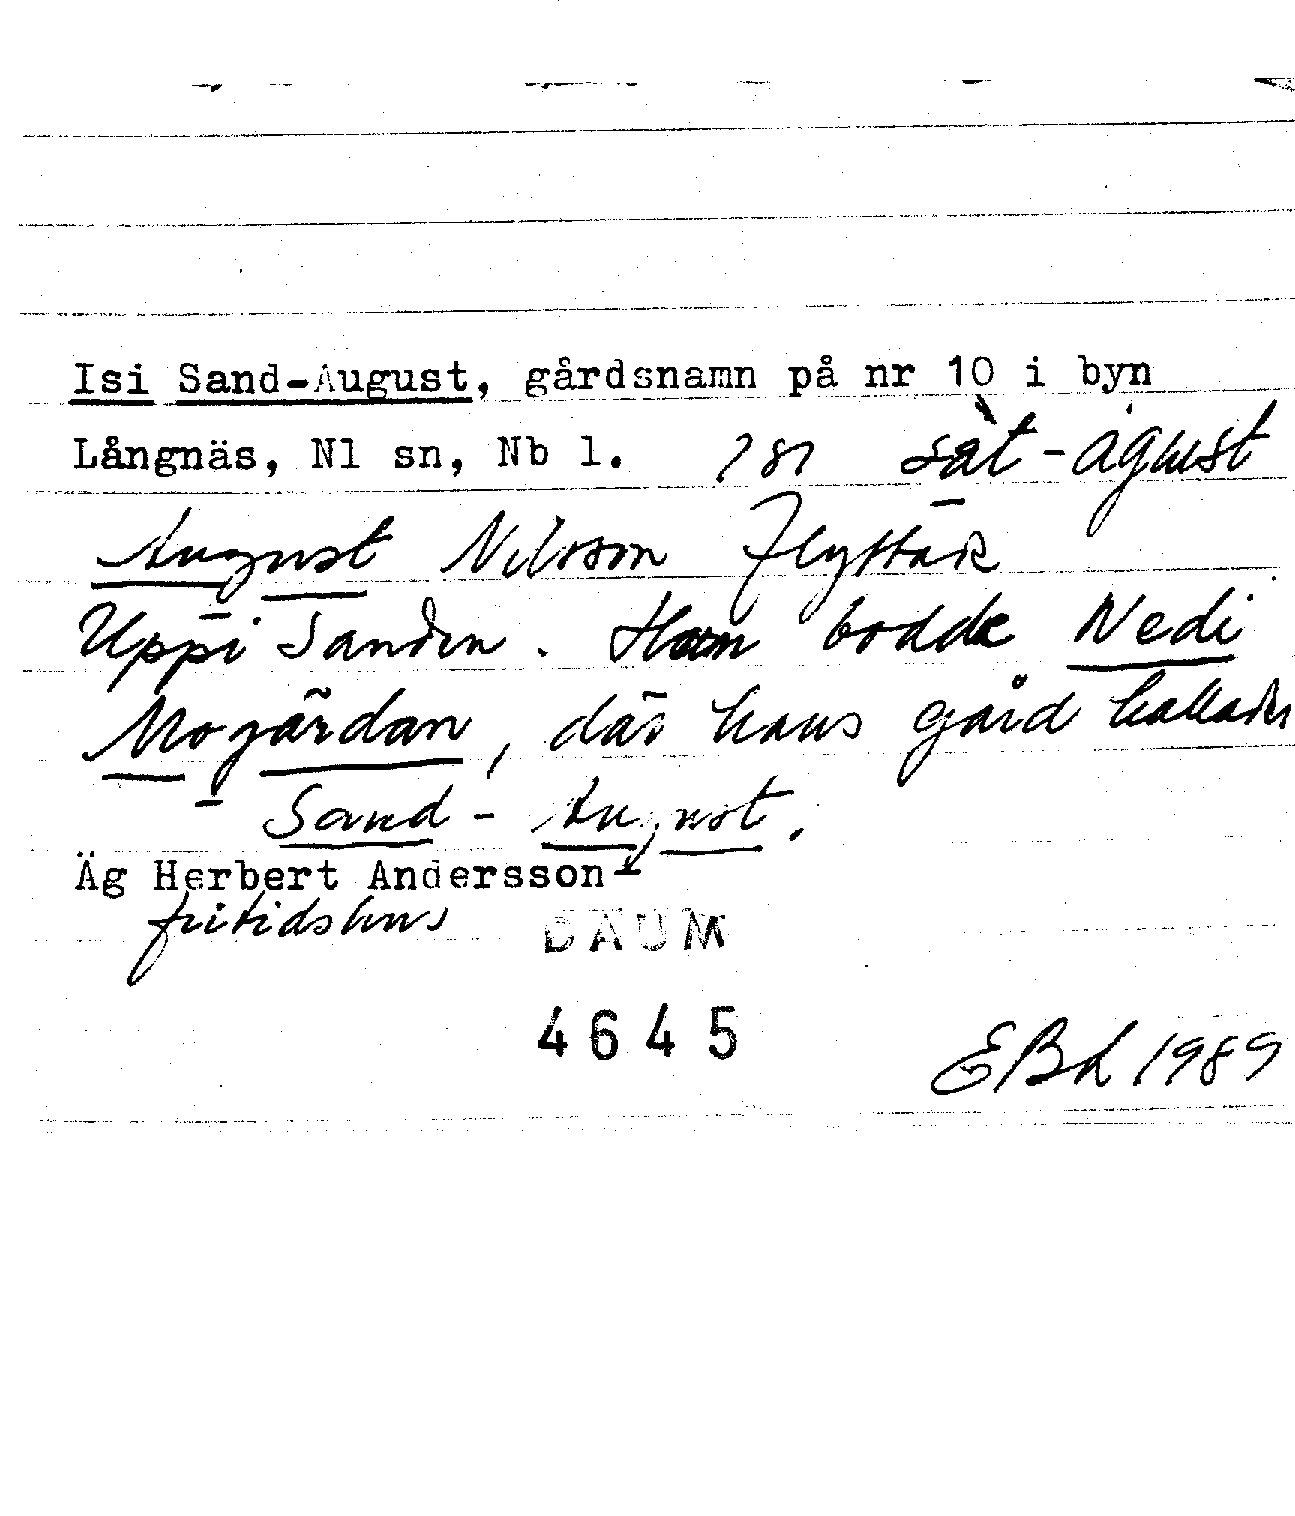 Isi Sand-August, gårdsnamn på nr 10 i byn
Långnäs, Nl sn, Nb l. sàt-águst
August Nilsson Flyttade
Uppi Sanden. Han bodde Nedi
Mogärdan, där hans gård kallades
Sand-August.
Äg Herbert Andersson
fritidshus DAUM
4645
EBL 1989